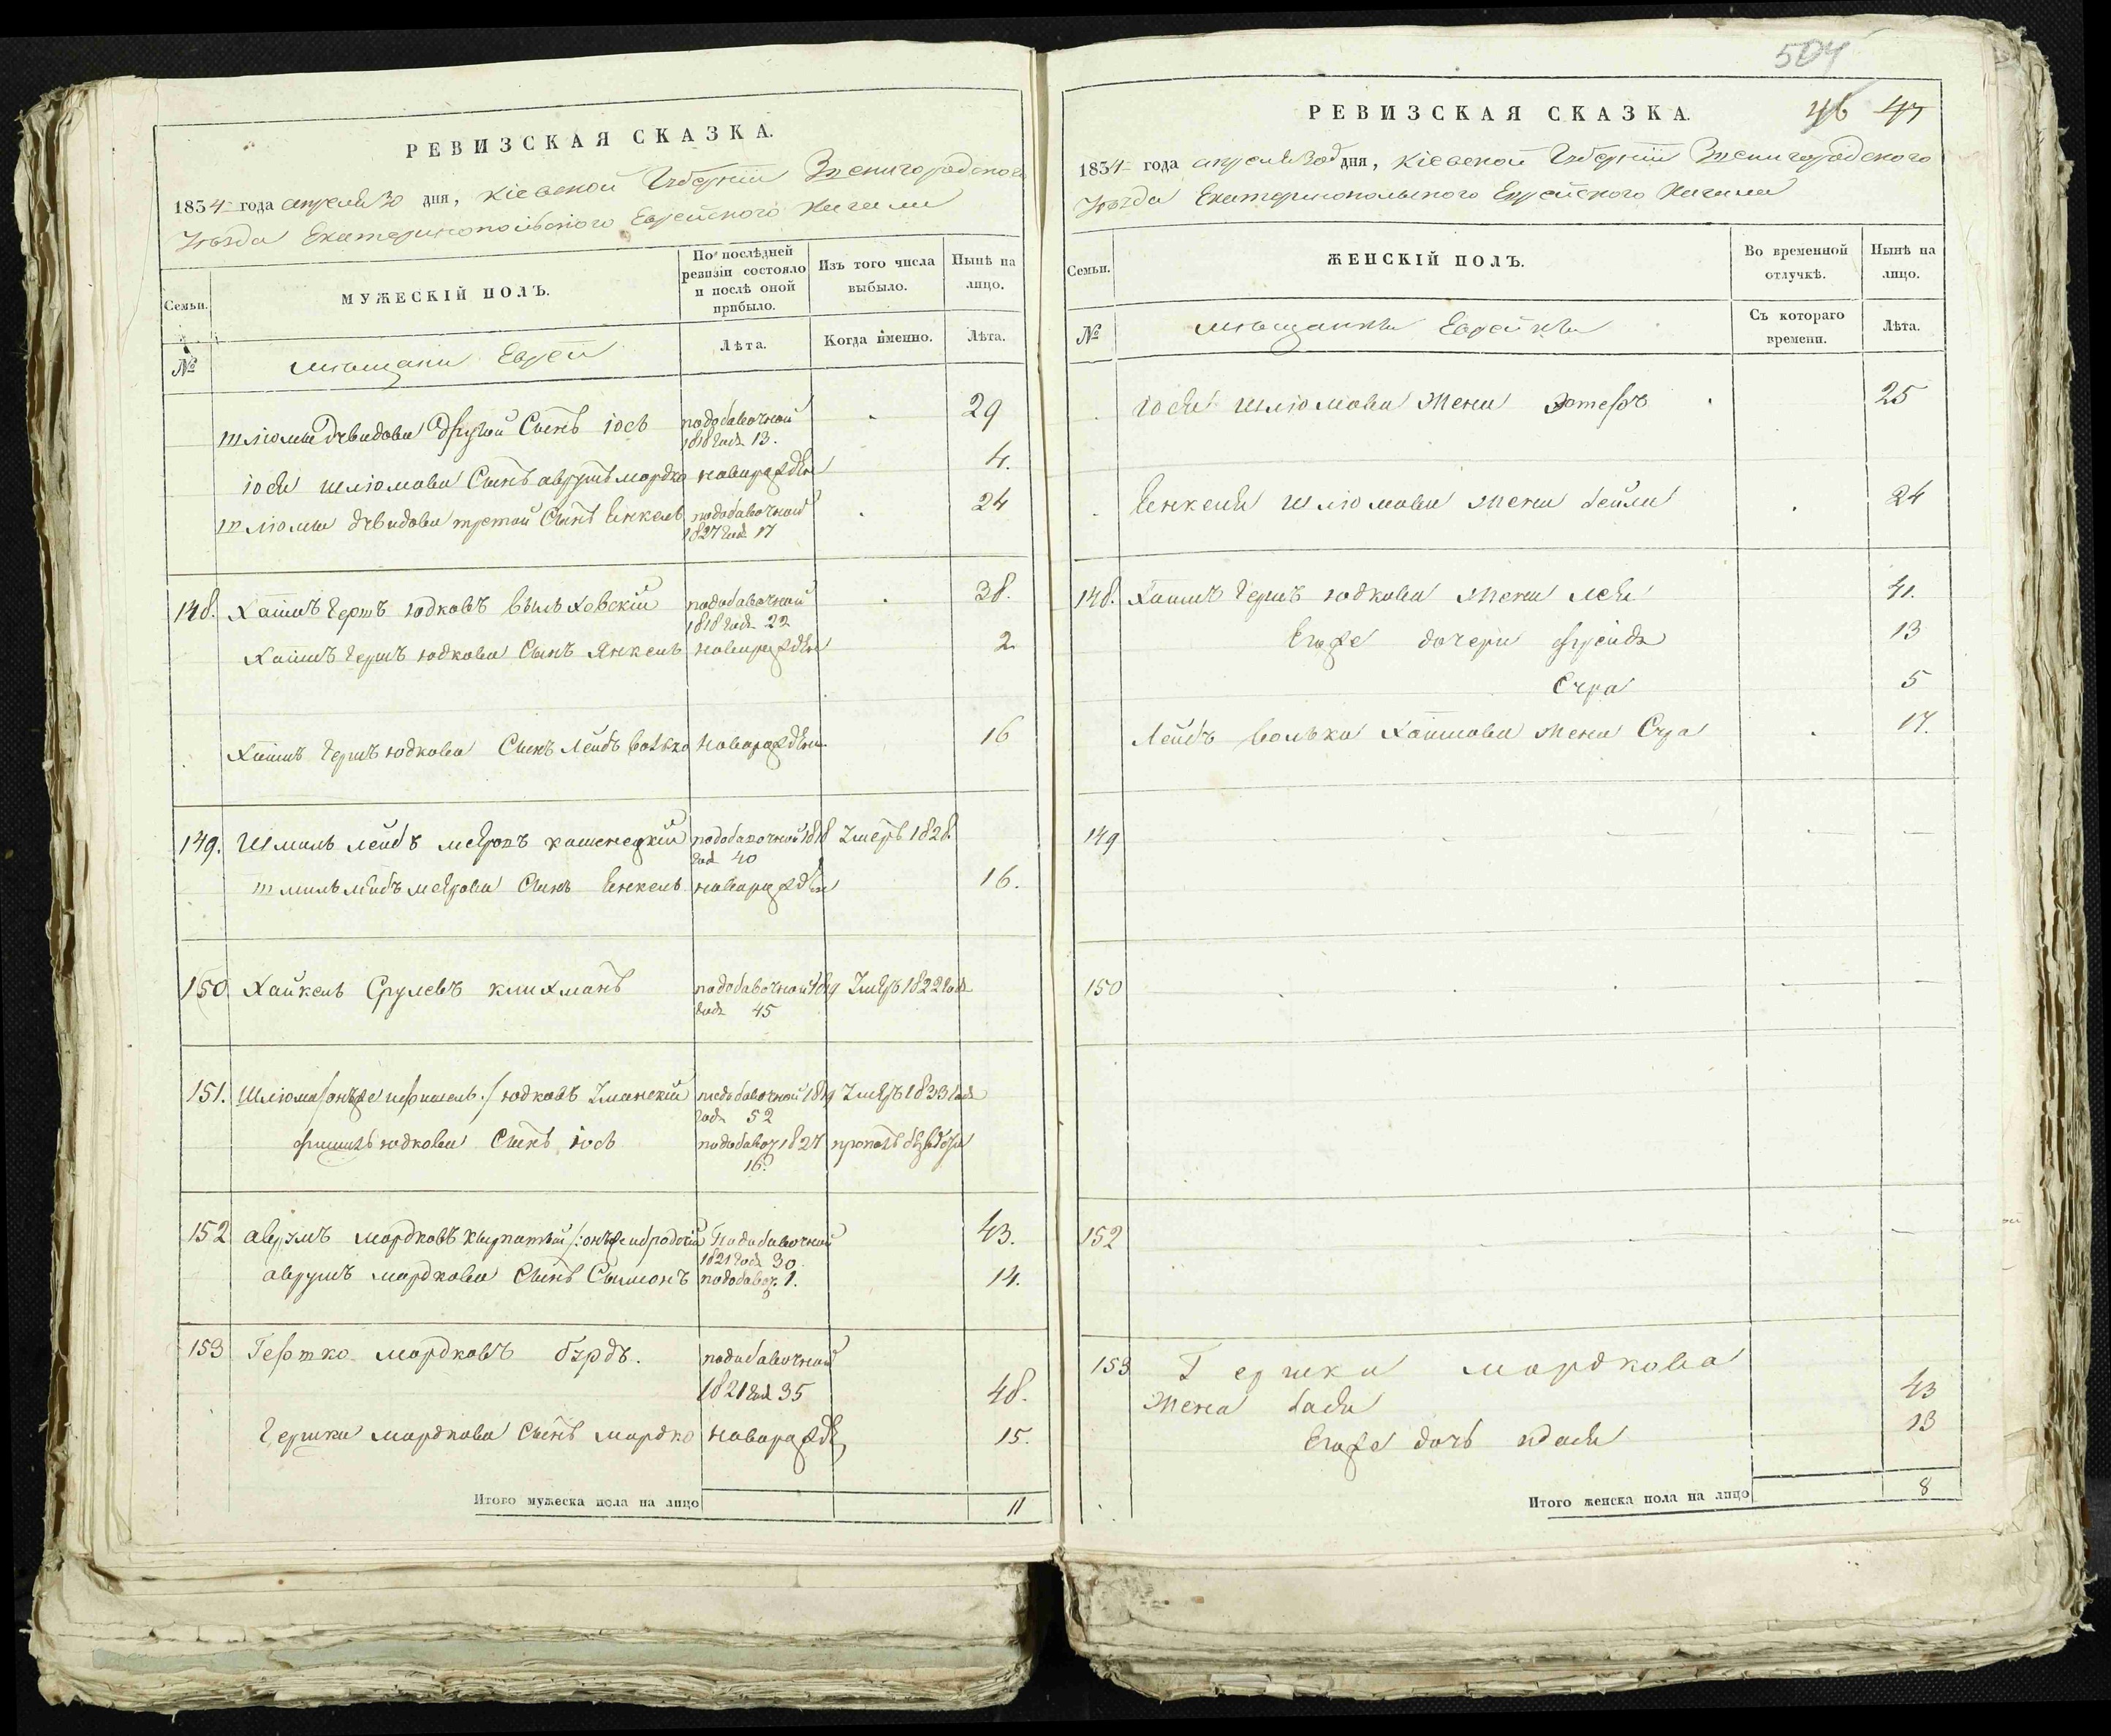 РЕВИЗСКАЯ СКАЗКА.
1834 года апреля 30 дня, Кіевской Губерніи Звенигородского
Уѣзда Екатеринопольского Еврейского Кагала
Семьи.
МУЖЕСКІЙ ПОЛЪ.
По послѣдней ревизіи состояло и послѣ оной прибыло.
Изъ того числа выбыло.
Нынѣ на лицо.
№
мѣщани Евреи
Лѣта.
Когда именно.
Лѣта.
шліомы Дувидова другой Сынъ іось подобавочной 29
1818 года 13.
іося шліомова Сынъ аврумъ мордко новорожден 4.
шліомы дувидова третой Сынъ Енкель подобавочной 24
1827 года 17
148. Хаимъ Гершъ юдковъ подобавочной 38.
1818 года 22
Хаимъ Герша юдкова Сынъ Янкель новорожден 2
Хаимъ Герша юдкова Сынъ Лейбъ волько новорожден. 16
149. Шмиль лейбъ меѣровъ каменецкій подобавочной 1818 Умеръ 1828.
года 40
шмиль лейбъ меѣрова Сынъ Енкель новорожден 16.
150 Хайкель Срулевъ клихманъ подобавочной 1819 Умеръ 1822 года
года 45
151. Шліома /онъже фишель./ юдковъ Уманскій подобавочной 1819 Умеръ 1833 года
года 52
фишиль юдкова Сынъ іось подобавоч 1827
16.
152 аврумъ мордковъ /:онъже подобавочной 43.
1821 года 30.
аврумъ мордкова Сынъ Сымонъ подобавоч. 1. 14.
153 Гершко мордковъ бурдъ. подобавочной
1821 года 35 48.
Гершка мордкова Сынъ мордко новорожде 15.
Итого мужеска пола на лицо 11
504
РЕВИЗСКАЯ СКАЗКА.
46 47
1834 года апреля 30 дня, Кіевской Губерніи Звенигородского
Уѣзда Екатеринопольского Еврейского Кагала
Семьи.
ЖЕНСКІЙ ПОЛЪ.
Во временной отлучкѣ.
Нынѣ на лицо.
№
мѣщанки Еврейки
Съ котораго времени.
Лѣта.
іося шліомова жена 25
Енкеля шліомова жена бейла 24
148. Хаимъ Герша юдкова жена лея 41.
Егоже дочери фрейда 13
Сура 5
Лейбъ волька Хаимова жена Сура 17.
149
150
152
153 Гершка мордкова
жена бася 43
Егоже дочь 13
Итого женска пола на лицо 8